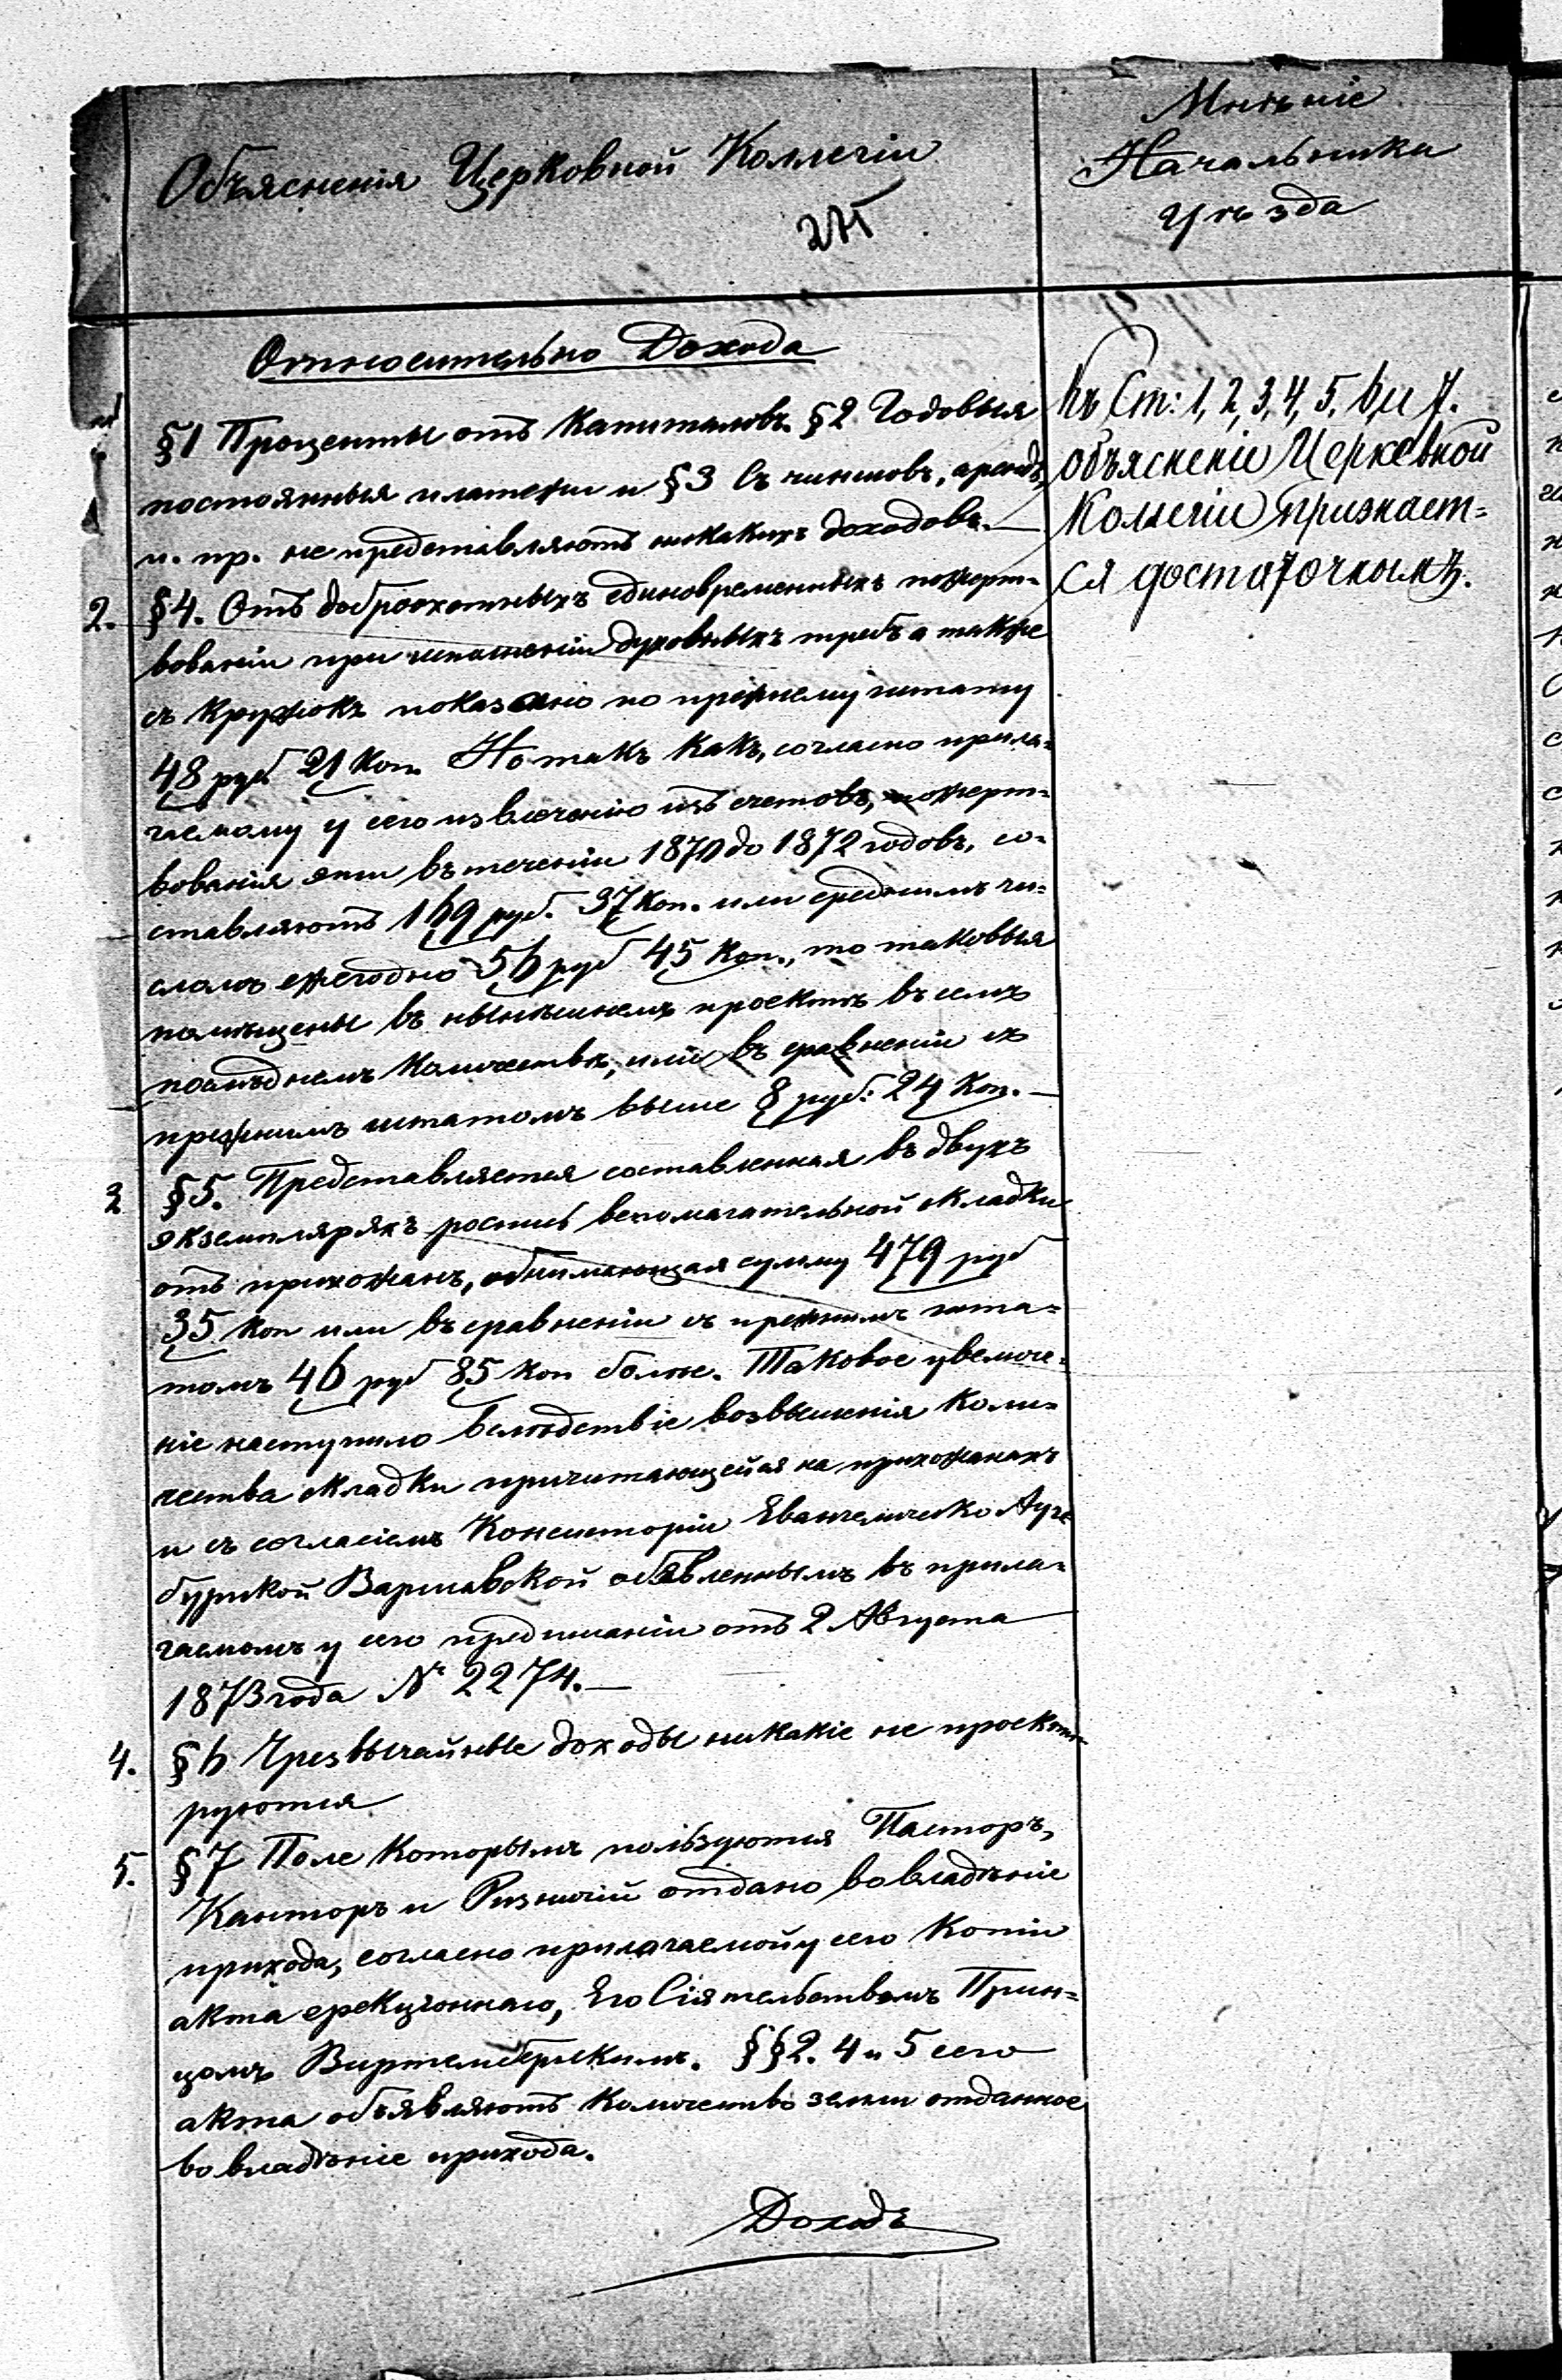 Объясненія Церковной Коллегіи
Мнѣніе
Начальника
Уѣзда
Относительно Дохода
§1 Проценты отъ Капиталовъ. §2 Годовыя
постоянныя платежи и §3 Съ чиншовъ, арендъ,
и. пр. не представляютъ никакихъ доходовъ.—
2. §4. Отъ доброохотныхъ единовременныхъ пожерт=
вованіи при исполненіи духовныхъ требъ а также
съ кружокъ показано по прежнему штату
48 руб 21 Коп. Но такъ какъ, согласно прила=
гаемому у сего извлеченію изъ счетовъ, пожерт=
вованія эти въ теченіи 1870 до 1872 годовъ, со=
ставляютъ 169 руб. 37 Коп. или среднимъ чи=
сломъ ежегодно 56 руб 45 Коп., то таковыя
помѣщены въ нынѣшнемъ проектѣ въ семъ
послѣднемъ количествѣ, или въ сравненіи съ
прежнимъ штатомъ выше 8 руб: 24 Коп.—
3 §5. Представляется составленная въ двухъ
экземплярахъ роспись вспомагательной складки
отъ прихожанъ, обнимающая сумму 479 руб
35 коп или въ сравненіи съ прежнимъ шта=
томъ 46 руб 85 коп болѣе. Таковое увеличе=
ніе наступило вслѣдствіе возвышенія коли=
чества складки причитающейся на прихожанахъ
и съ согласіемъ Консисторіи Евангелическо Аугс
бургской Варшавской объявленнымъ въ прила=
гаемомъ у сего предписаніи отъ 2 Августа
1873 года № 2274.—
4. §6 Чрезвычайные доходы никакіе не проекти=
руются
5. §7 Поле которымъ пользуются Пасторъ,
Канторъ и Ризничій отдано во владѣніе
прихода, согласно прилагаемой у сего Копіи
акта ерекціоннаго, Его Сіятельствомъ Прин=
цомъ Виртембергскимъ. §§2. 4 и 5 сего
акта объявляютъ количество земли отданное
во владѣніе прихода.
Доходъ
Къ Ст: 1, 2, 3, 4, 5, 6 и 7.
объясненіе Церковной
Коллегіи признает=
ся достаточнымъ.